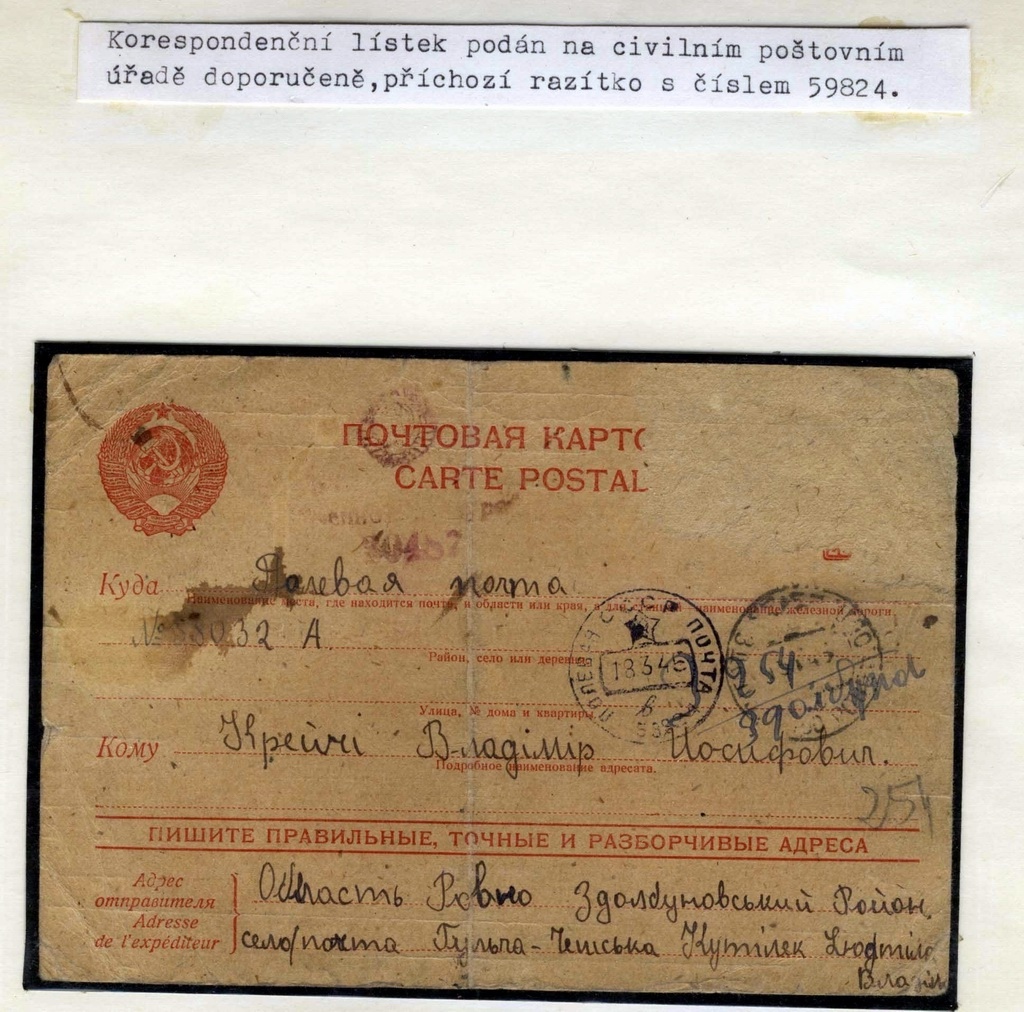 Korespondenční lístek podán na civilním poštovním
úřadě doporučeně,příchozí razítko s číslem 59824.
ПОЧТОВАЯ КАРТО
CARTE POSTAL
Куда Полевая почта
Наименование места, где находится почта, и области или края, а для станций наименование железной дороги.
32 А.
Район, село или деревня
Улица, № дома и квартиры
Кому Крейчі Владімір Иосифович.
Подробное наименование адресата.
ПОЛЕВАЯ ПОЧТА
18.3.45
в
254
Здолбунов
251
ПИШИТЕ ПРАВИЛЬНЫЕ, ТОЧНЫЕ И РАЗБОРЧИВЫЕ АДРЕСА
Адрес отправителя
Adresse de l'expéditeur
Область Ровно Здолбуновський Район,
село/почта Гульча-Чешська Кутілек Людміла
Владім